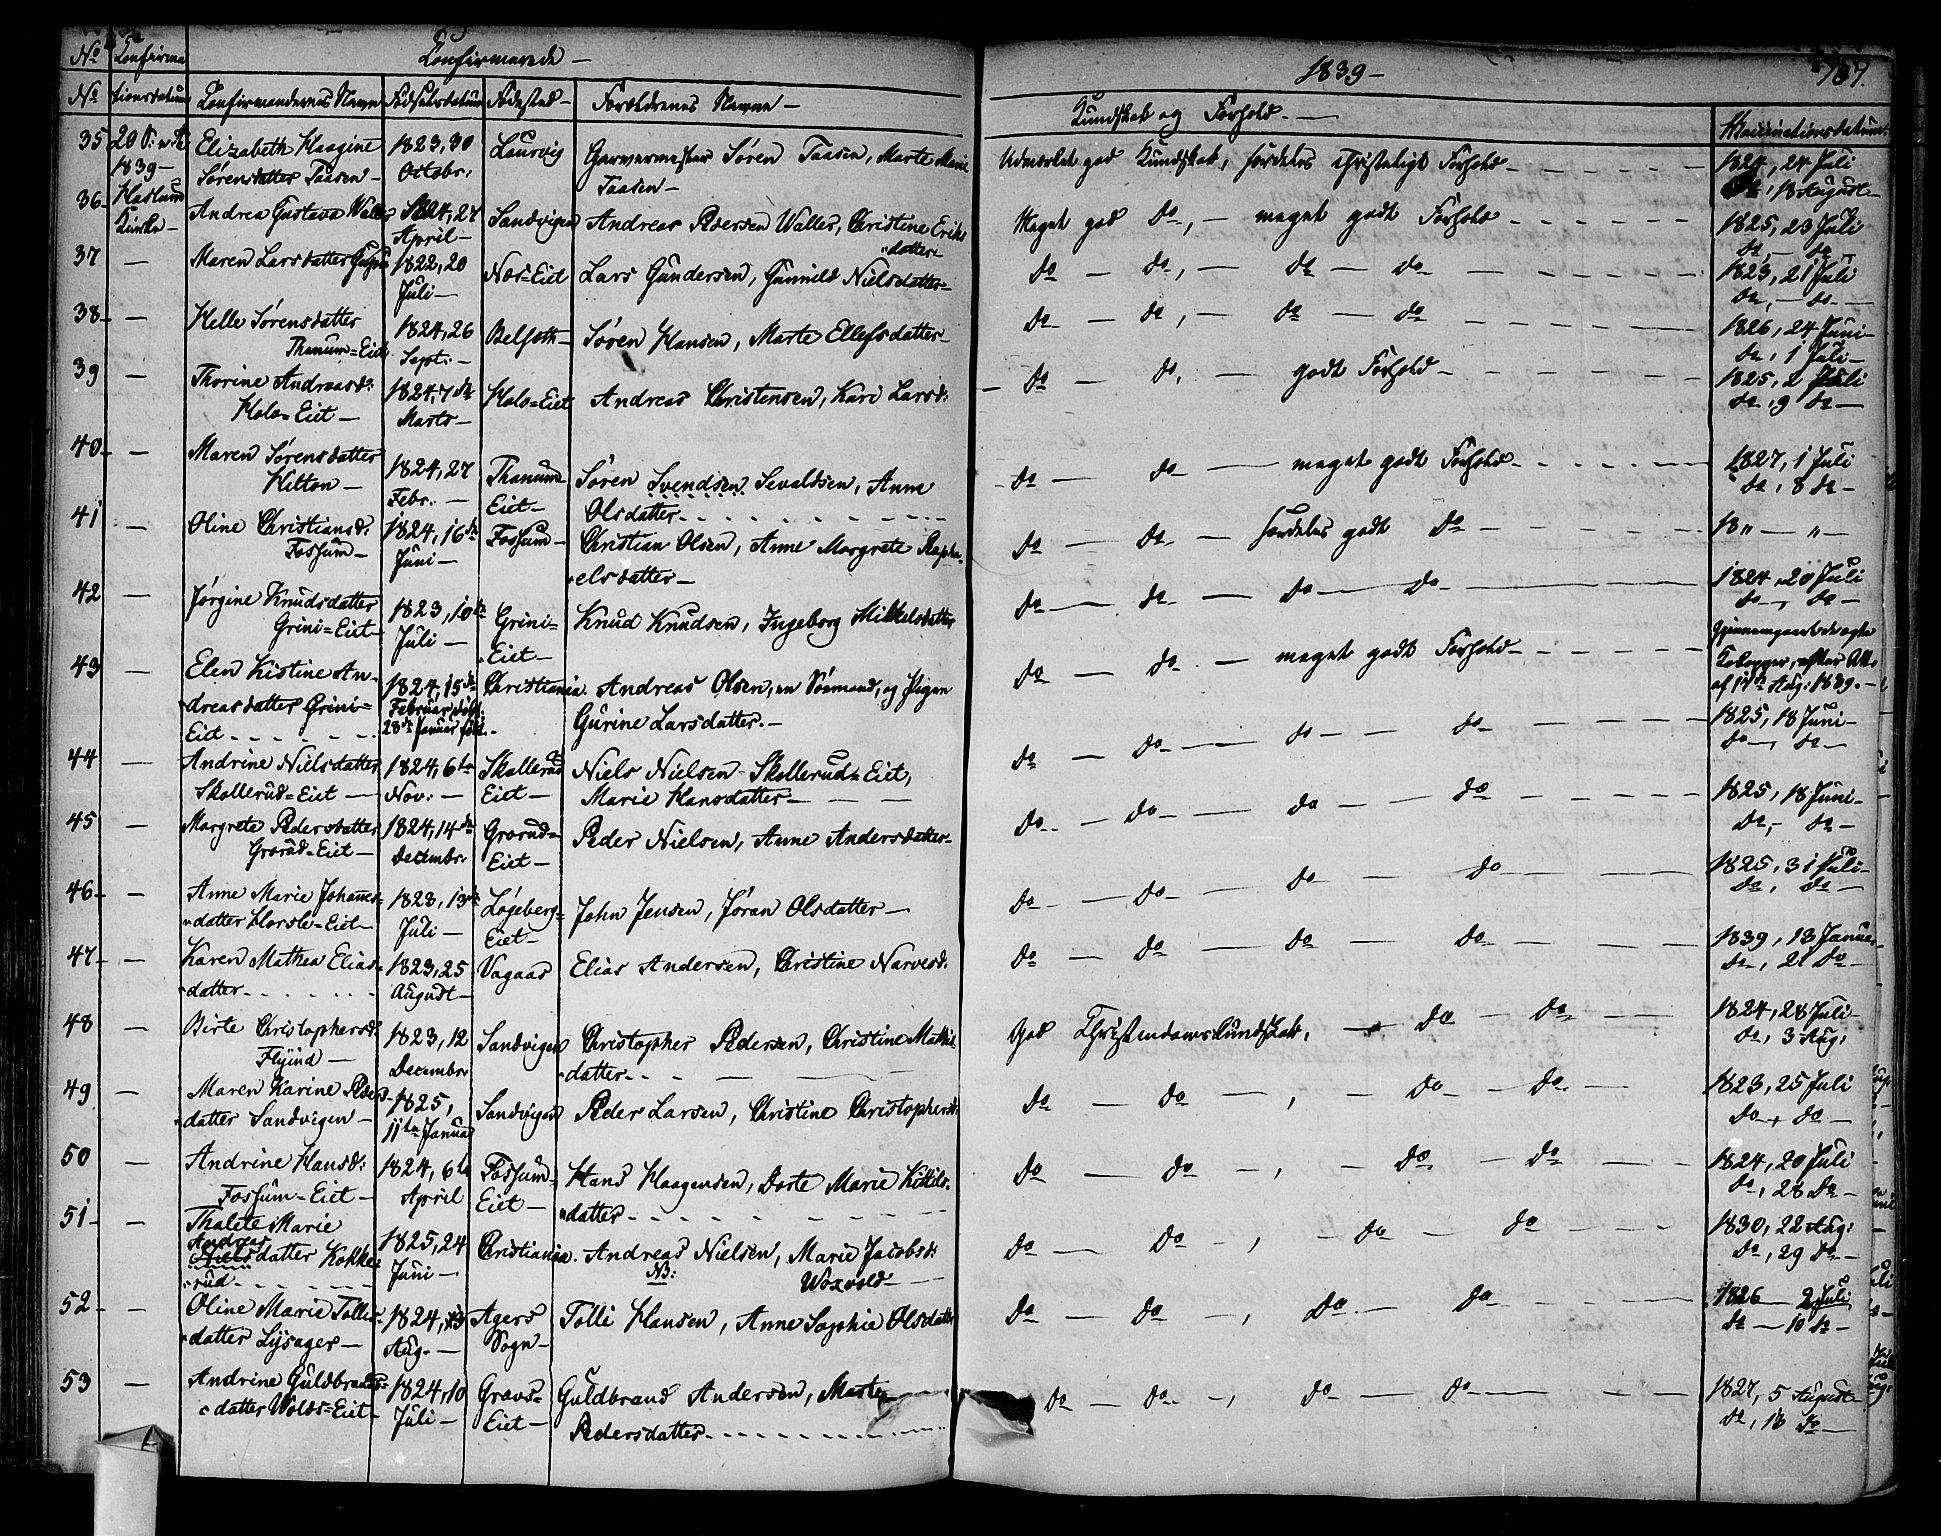 No Confirma Confirmerede — 1839 —
No tionsdatum Confirmandernes Navne Fødselsdatum Fødested — Forældrenes Navne — Kundskab og Forhold — Vaccinationsdatum
35 20 Elizabeth Haagine 1823, 30 Laurvig Garvermester Søren Taasen, Marte Marie Udmærket god Kundskab, særdeles christeligt Forhold — 1824, 24 Juli
1839 — Sørensdatter Taasen — Octobr: Taasen — do, 18 August —
36 — Haslum Andrea Gustava Waller 1824, 27 Sandvigen Andreas Pedersen Waller, Christine Eriks Meget god do, — meget godt Forhold — 1825, 23 Juli
Kirke — April — datter — do, do —
37 — Maren Larsdatter 1822, 20 Næs=Eiet Lars Gundersen, Gunnild Nielsdatter — do — do, — do — do — 1823, 21 Juli
Juli — do, — do —
38 — — Helle Sørensdatter 1824, 26 Søren Hansen, Marte Ellefsdatter — do — do, — do — do — 1826, 24 Juni —
Thanum=Eiet Sept: — do, 1 Juli —
39 — Thorine Andreasd: 1824, 7de Holo=Eiet Andreas Christensen, Kari Larsd: do — do, — godt Forhold — 1825, 2 Juli
Holo=Eiet — Marts — do, 9 do —
40 — — Maren Sørensdatter 1824, 27 Thanum Søren Svendsen Sevaldsen, Anne do — do — meget godt Forhold — 1827, 1 Juli
Febr: — Eiet — Olsdatter — do, 8 do —
41 — Oline Christiansd: 1824, 16de Fossum — Christian Olsen, Anne Margrete Rapha= do — do — særdeles godt do — 18 „ — „ —
Fossum — Juni — elsdatter —
42 — Jørgine Knudsdatter 1823, 10de Grini= Knud Knudsen, Ingeborg Mikkelsdatter do — do — do — do — 1824, 20 Juli
Grini=Eiet — Juli — Eiet — do —, do —
43 — Elen Kistine An= 1824, 15de Christiania. Andreas Olsen, en Sømand, og Pigen do — do — meget godt Forhold — Gjennemgaaet de ægte
dreasdatter Grini= Februar døbt Gurine Larsdatter. — Kokopper, efter Att:
Eiet — 28de Januar født. af 17de Aug: 1839. —
44 — Andrine Nielsdatter 1824, 6te Skollerud Niels Nielsen Skollerud=Eiet, do — do — do — do — 1825, 18 Juni —
Skollerud=Eiet — Nov: — Eiet — Marie Hansdatter — do —, do —
45 — Margrete Pedersdatter 1824, 14de Grorud= Peder Nielsen, Anne Andersdatter — do — do — do — do — 1825, 18 Juni —
Grorud=Eiet — Decembr. Eiet — do, — do —
46 — Anne Marie Johannes= 1823, 13de Løgeberg= John Jensen, Jøran Olsdatter — do — do — do — do — 1825, 31 Juli —
datter Horsle=Eiet — Juli — Eiet — do, do —
47 — — Karen Mathea Elias= 1823, 25 Vagaas Elias Andersen, Christine Narvesd: do — do — do — do — 1839, 13 Januar
datter — August — do, 21 do —
48 — Birte Christophersd: 1823, 12 Sandvigen Christopher Pedersen, Christine Mathis= God Christendomskundskab, — do — do — 1824, 28 Juli —
Decembr. datter — do, 3 Aug:
49 — Maren Karine Peders= 1825, Sandvigen Peder Larsen, Christine Christophersd: do — do —, — do — do — 1823, 25 Juli
datter Sandvigen — 11te Januar do —, do —
50 — Andrine Hansd: 1824, 6te Fossum= Hans Haagensen, Dorte Marie Kittils= do — do —, — do — do — 1824, 20 Juli
Fossum=Eiet — April Eiet — datter — do, 28 do —
51 — — Thalete Marie 1825, 24 Christiania. Andreas Nielsen, Marie Jacobsd: do — do —, — do — do — 1830, 22 Aug:
Andreas
datter Kokke= Juni — NB: Woxvold — do, 29 do —
rud —
52 — — Oline Marie Tollis= 1824, Agers Tolli Hansen, Anne Sophie Olsdatter do — do —, do — do — 1826 — 2 Juli
datter Lysager — Aug. — Sogn — do — 10 do —
53 — Andrine Guldbrands= 1824, 10 Gravs= Guldbrand Andersen, Marte do — do —, do — do — 1827, 5 August —
datter Wolds=Eiet — Juli — Eiet — Pedersdatter — do, 13 do —